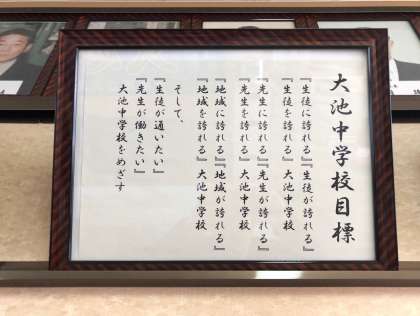 大池中学校目標
『生徒に誇れる』『生徒が誇れる』
『生徒を誇れる』大池中学校
『先生に誇れる』『先生が誇れる』
『先生を誇れる』大池中学校
『地域に誇れる』『地域が誇れる』
『地域を誇れる』大池中学校
そして、
『生徒が通いたい』
『先生が働きたい』
大池中学校をめざす